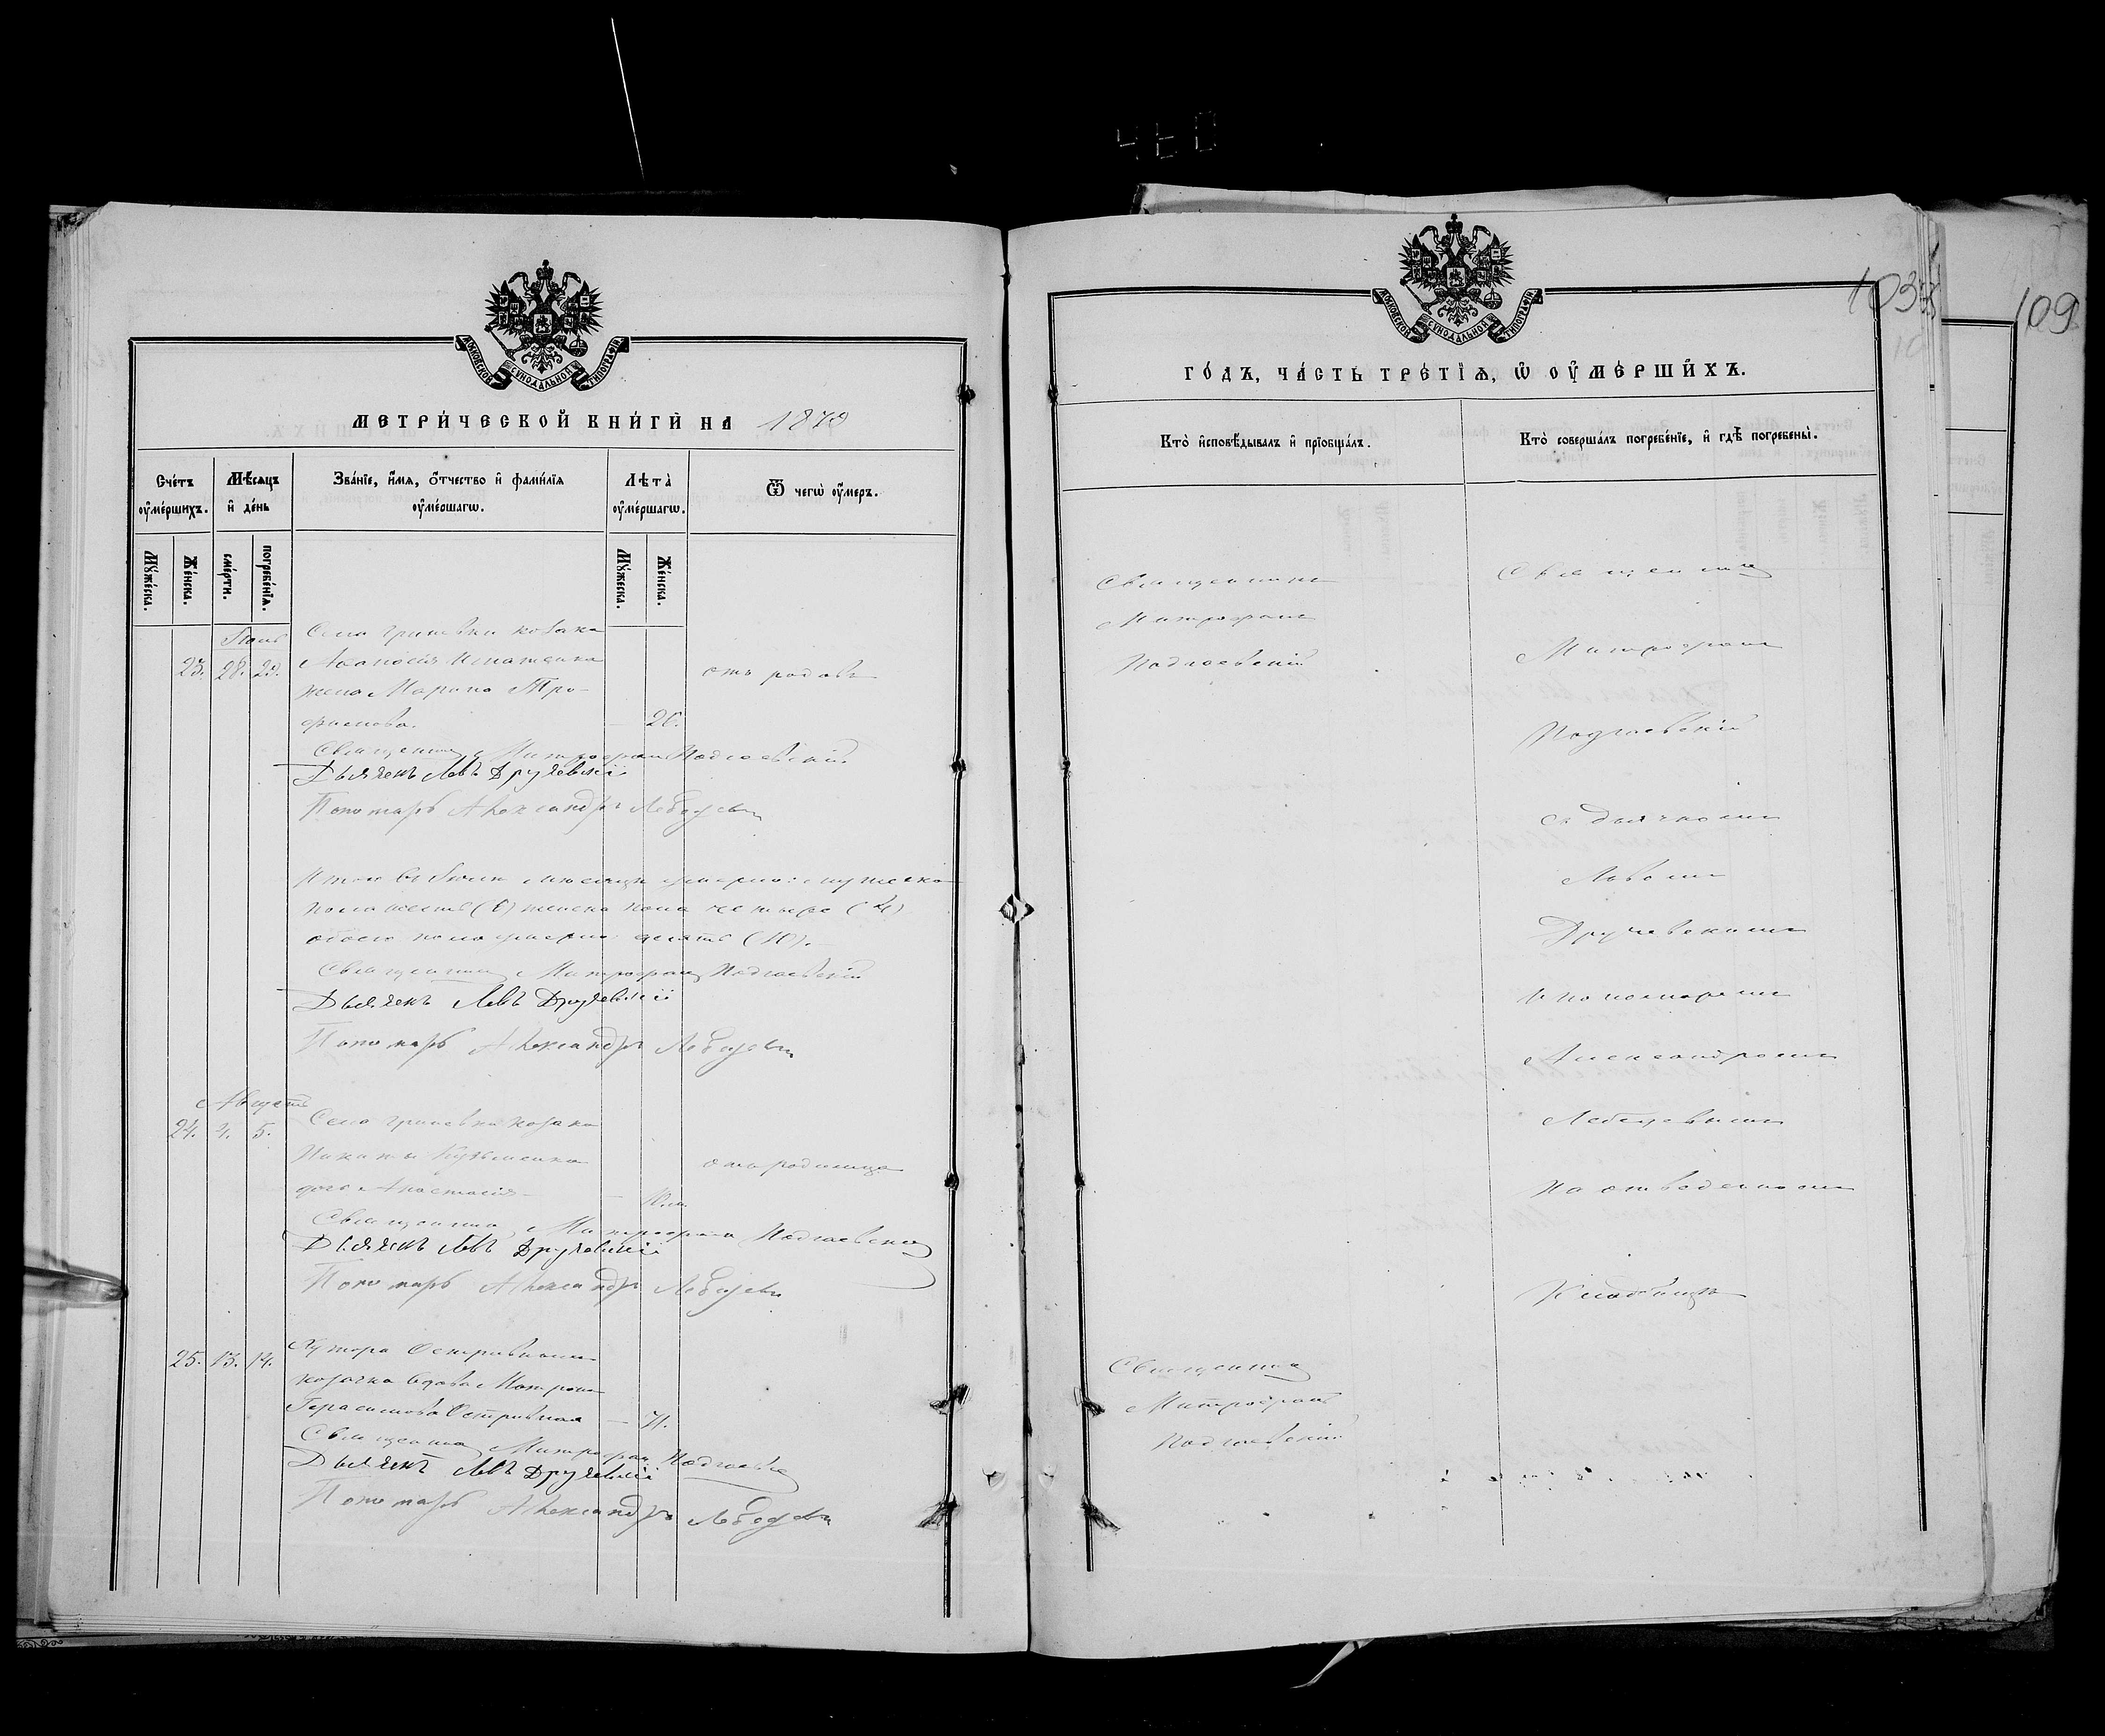 МОСКОВСКОЙ СѴНОДАЛЬНОЙ ТИПОГРАФІИ
МЕТРИ́ЧЕСКОЙ КНИ́ГИ НА 1870
Сче́тъ ᲂу҆ме́ршихъ.
Мѣ́сяцъ и҆ де́нь
Зва́нїе, и҆́мя, ѻ҆́тчество и҆ фами́лїя ᲂу҆ме́ршагѡ.
Лѣта̀ ᲂу҆ме́ршагѡ.
Ѿ чегѡ̀ ᲂу҆́меръ.
Му́жеска.
Же́нска.
сме́рти.
погребе́нїя.
Му́жеска.
Же́нска.
Села Гриневки козака
23. 28. 29.
жена Марина Тро-
фимова. — 26.
отъ родовъ
Священникъ Митрофанъ Подгаевскій
Дьячекъ Левъ Дручевскій
Пономарь Александръ Лебедевъ
Итого въ Іюлѣ мѣсяцѣ умерло: мужеска
пола шесть (6) женска пола четыре (4)
обоего пола умерло десять (10).
Священникъ Митрофанъ Подгаевскій
Дьячекъ Левъ Дручевскій
Пономарь Александръ Лебедевъ
Августъ
24. 4. 5. Села Гриневки козака
Никиты Кузьменка
дочь Анастасія —
отъ родимца
Священникъ Митрофанъ Подгаевскій
Дьячекъ Левъ Дручевскій
Пономарь Александръ Лебедевъ
25. 13. 14. Хутора
козачка вдова Матрона
Герасимова —
Священникъ Митрофанъ Подгаевскій
Дьячекъ Левъ Дручевскій
Пономарь Александръ Лебедевъ
109
МОСКОВСКОЙ СѴНОДАЛЬНОЙ ТИПОГРАФІИ
ГО́ДЪ, ЧА́СТЬ ТРЕ́ТЇЯ, Ѡ҆ ОУ҆МЕ́РШИХЪ.
Кто̀ и҆сповѣ́дывалъ и҆ прїобща́лъ.
Кто̀ соверша́лъ погребе́нїе, и҆ гдѣ̀ погребены̀.
Священникъ
Митрофанъ
Подгаевскій
Священникъ
Митрофанъ
Подгаевскій
съ дьячкомъ
Львомъ
Дручевскимъ
и пономаремъ
Александромъ
Лебедевымъ
на отведенномъ
кладбищѣ
Священникъ
Митрофанъ
Подгаевскій